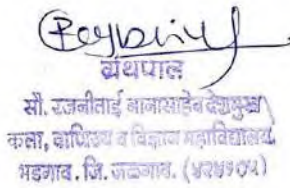 ग्रंथपाल
सौ. रजनीताई नानासाहेब देशमुख
कला, वाणिज्य व विज्ञान महाविद्यालय,
भडगाव. जि. जळगाव. (४२४१०५)